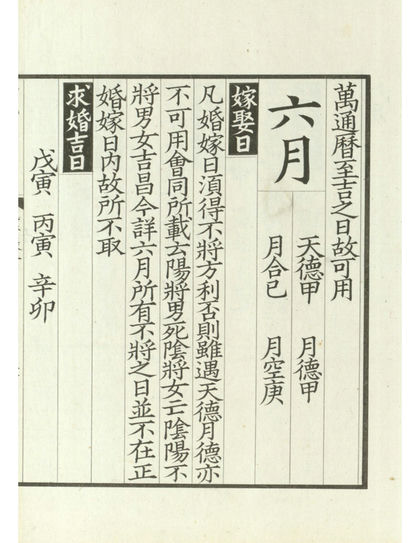 萬通曆至吉之日故可用
六月
天德甲　月德甲
月合己　月空庚
嫁娶日
凡婚嫁日須得不將方利否則雖遇天德月德亦
不可用會同所載云陽將男死陰將女亡陰陽不
將男女吉昌今詳六月所有不將之日並不在正
婚嫁日內故所不取
求婚吉日
戊寅　丙寅　辛卯